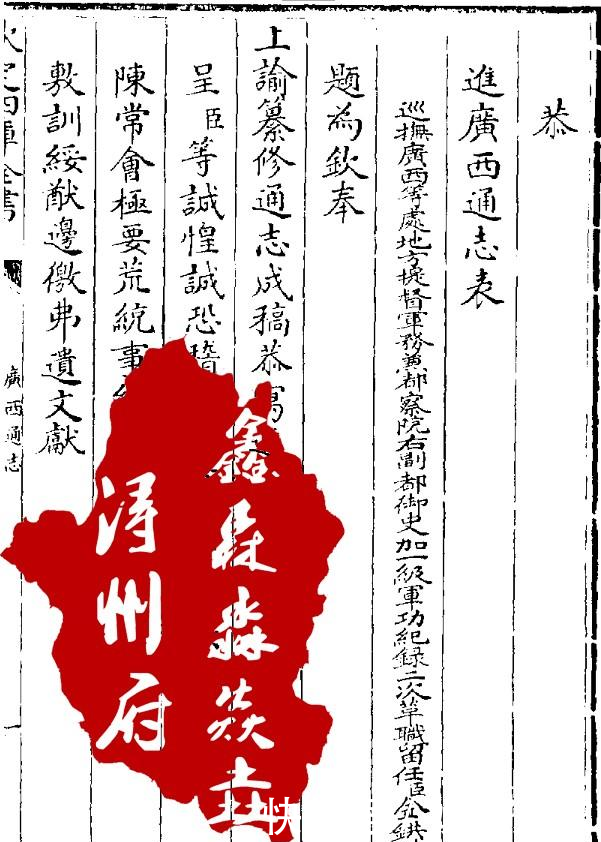 恭
進廣西通志表
巡撫廣西等處地方提督軍務兼都察院右副都御史加一級軍功紀錄二次革職留任臣金鉷
題為欽奉
上諭纂修通志成稿恭寫
呈臣等誠惶誠恐稽
陳常會極要荒統事
敷訓綏猷邊徼弗遺文獻
欽定四庫全書
廣西通志
一
鑫森淼焱垚
潯州府
快